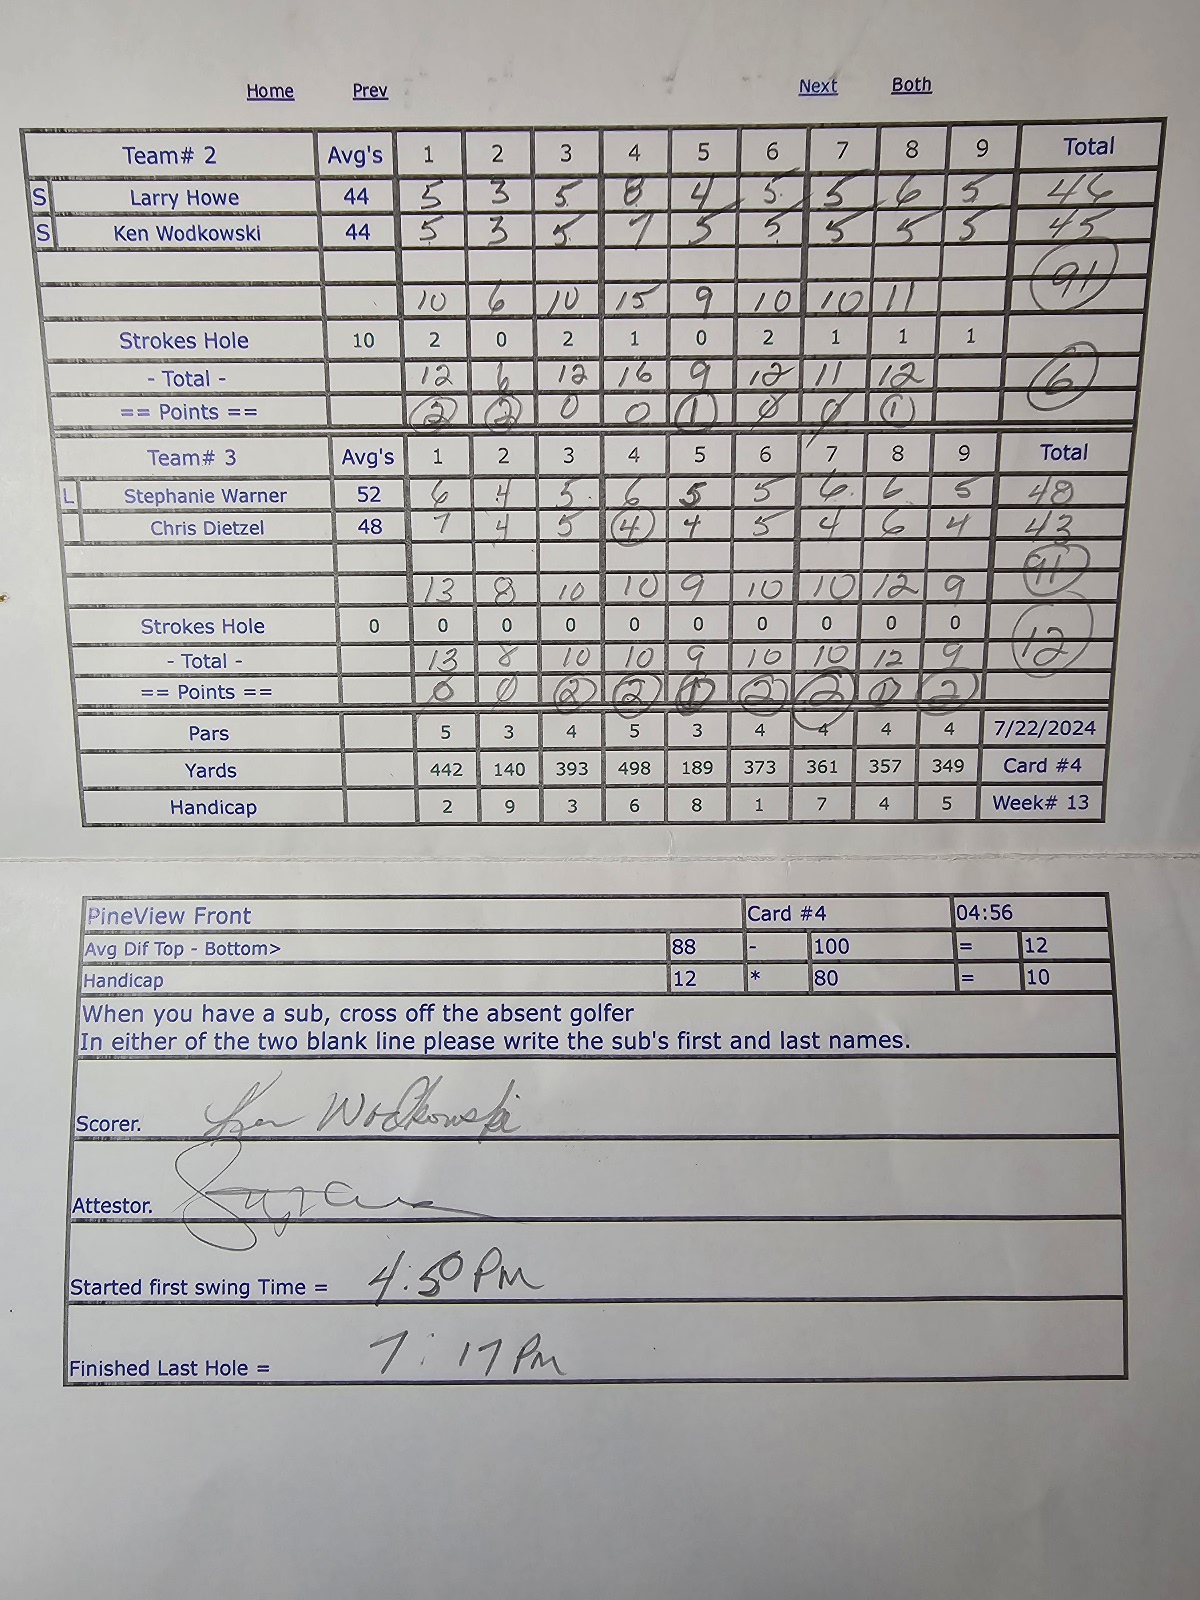 Home Prev Next Both
Team# 2 Avg's 1 2 3 4 5 6 7 8 9 Total
S Larry Howe 44 5 3 5 8 4 5 5 6 5 46
S Ken Wodkowski 44 5 3 5 7 5 5 5 5 5 45
91
10 6 10 15 9 10 10 11
Strokes Hole 10 2 0 2 1 0 2 1 1 1
- Total - 12 6 12 16 9 12 11 12 6
== Points == 2 2 0 0 1 0 0 1
Team# 3 Avg's 1 2 3 4 5 6 7 8 9 Total
L Stephanie Warner 52 6 4 5 6 5 5 6 6 5 48
Chris Dietzel 48 7 4 5 4 4 5 4 6 4 43
91
13 8 10 10 9 10 10 12 9
Strokes Hole 0 0 0 0 0 0 0 0 0 0 12
- Total - 13 8 10 10 9 10 10 12 9
== Points == 0 0 2 2 1 2 2 1 2
Pars 5 3 4 5 3 4 4 4 4 7/22/2024
Yards 442 140 393 498 189 373 361 357 349 Card #4
Handicap 2 9 3 6 8 1 7 4 5 Week# 13
PineView Front Card #4 04:56
Avg Dif Top - Bottom> 88 - 100 = 12
Handicap 12 * 80 = 10
When you have a sub, cross off the absent golfer
In either of the two blank line please write the sub's first and last names.
Scorer. Ken Wodkowski
Attestor.
Started first swing Time = 4:50 PM
Finished Last Hole = 7:17 PM